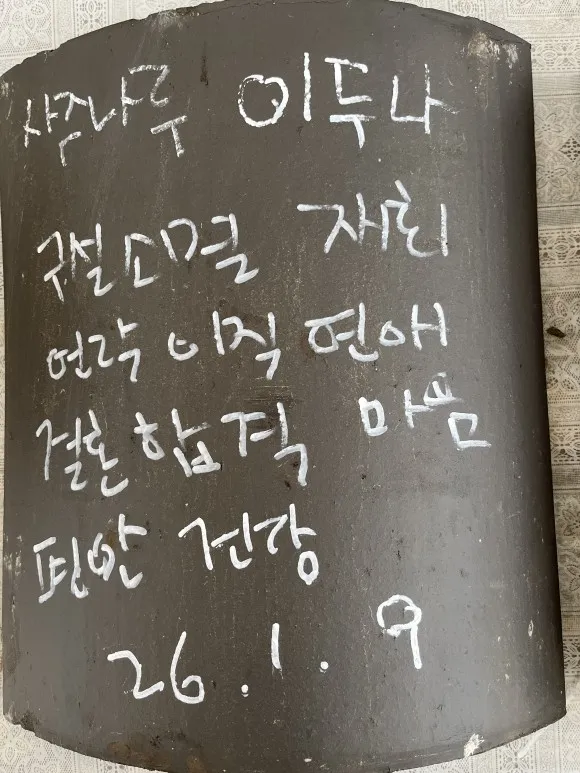 사주나루 이두나
구설 소멸 재회
연락 이직 연애
결혼 합격 마음
편안 건강
26.1.9